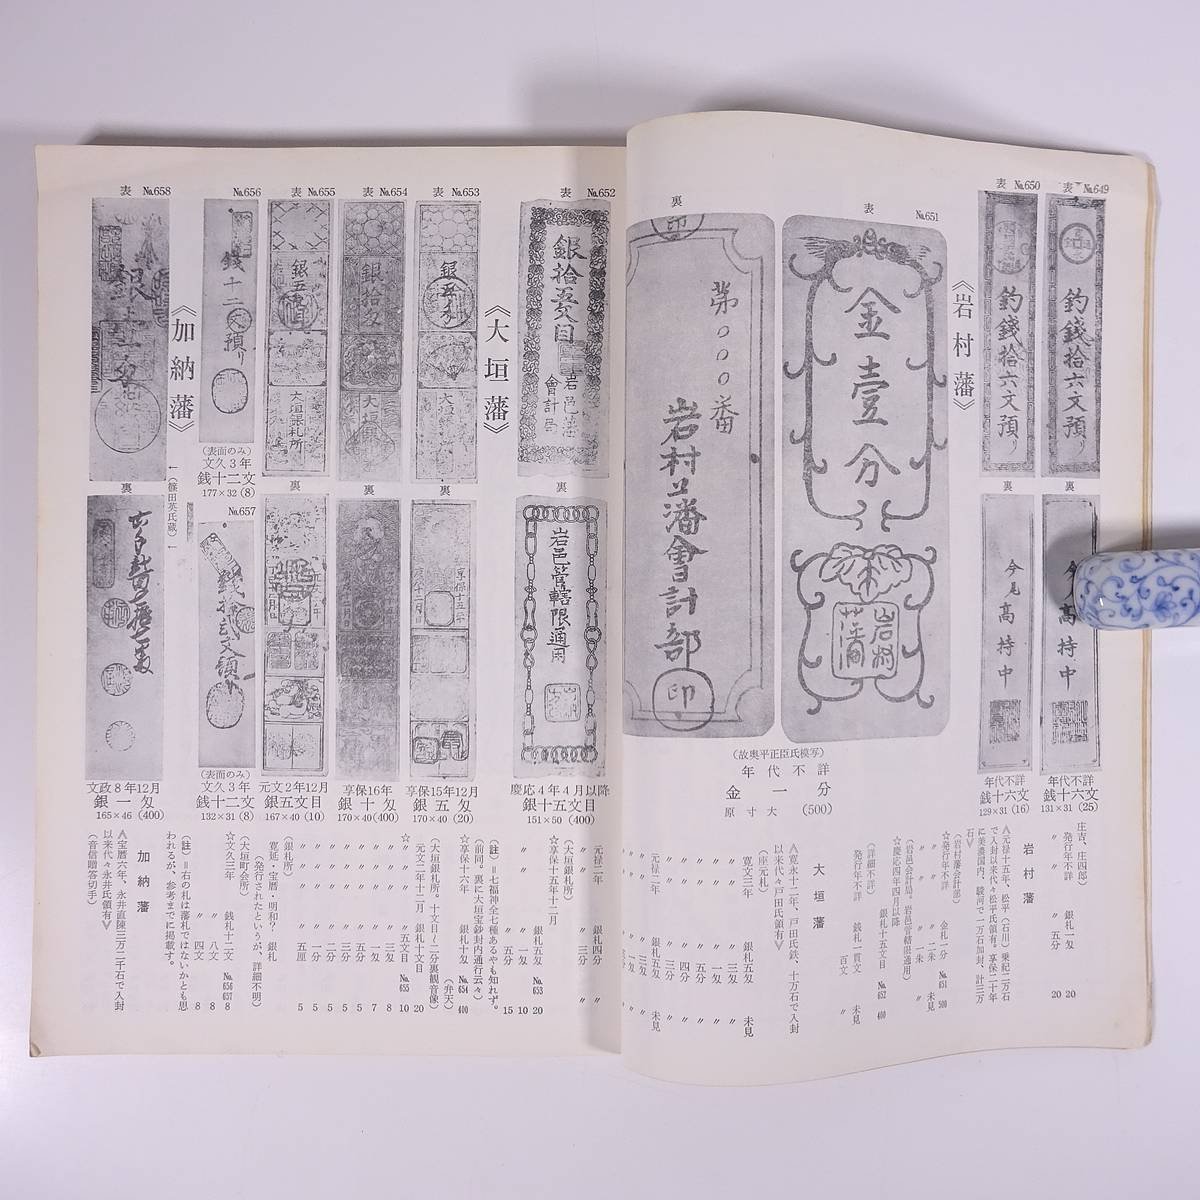 №649
表
釣錢拾六文預り
裏
高持中
年代不詳
銭十六文
131×31 (25)
№650
表
釣錢拾六文預り
裏
今尾
高持中
年代不詳
銭十六文
129×31 (16)
《岩村藩》
№651
表
金壹分
岩村藩
裏
印
第〇〇〇番
岩村藩會計部
印
(故奥平正臣氏模写)
年代不詳
金一分
原寸大 (500)
庄吉、庄四郎)
発行年不詳 銀札一匁 20
〃 〃 五分 20
岩村藩
∧元禄十五年、松平(石川)乗紀二万石
で入封以来代々松平氏領有。享保二十年
に美濃国内、駿河で一万石加封、計三万
石∨
(岩村藩会計部)
☆発行年不詳 金札一分 №651 500
〃 〃 二朱 未見
〃 〃 一朱 〃
(岩邑会計局。岩邑管轄限通用)
☆慶応四年四月以降
銀札十五文目 №652 400
(詳細不詳)
発行年不詳 銭札一貫文 未見
百文 〃
大垣藩
∧寛永十二年、戸田氏鉄、十万石で入封
以来代々戸田氏領有∨
(座元札)
寛文三年 銀札五匁 未見
〃 〃 三匁 〃
〃 〃 一匁 〃
〃 〃 五分 〃
〃 〃 四分 〃
〃 〃 三分 〃
元禄二年 銀札五匁 未見
〃 〃 三匁 〃
〃 〃 一匁 〃
№652
表
銀拾五文目
岩邑藩
會計局
裏
岩邑管轄限通用
慶応4年4月以降
銀十五文目
151×50 (400)
《大垣藩》
№653
表
銀五分
裏
享保十五年
享保15年12月
銀五分
170×40 (20)
№654
表
銀拾匁
大垣
裏
享保16年
銀十匁
170×40 (400)
№655
表
銀五文目
大垣銀札所
裏
元文2年12月
銀五文目
167×40 (10)
№656
錢十二文預り
(表面のみ)
文久3年
銭十二文
177×32 (8)
№657
(表面のみ)
文久3年
銭十二文
132×31 (8)
《加納藩》
←(篠田英氏蔵)←
№658
表
銀一匁
裏
文政8年12月
銀一匁
165×46 (400)
元禄二年 銀札四分 〃
〃 〃 三分 〃
(大垣銀札所)
☆享保十五年十二月
銀札五匁 №653 20
〃 一匁 10
〃 五分 15
(註)=七福神全七種あるやも知れず。
(前同。裏に大垣宝鈔封内通行云々)
☆享保十六年 銀札十匁 №654 400
(弁天)
(大垣銀札所。十文目~二分裏観音像)
元文二年十二月 銀札十文目 20
☆〃 〃 五文目 №655 10
〃 〃 三匁 8
〃 〃 一匁 7
〃 〃 五分 5
〃 〃 三分 5
〃 〃 二分 5
〃 〃 一分 5
〃 〃 五厘 5
(銀札所)
寛延・宝暦・明和? 銀札
(発行されたというが、詳細不明)
(大垣町会所)
☆文久三年 銭札十二文 №656 657 8
〃 〃 八文 8
〃 〃 四文 8
(註)=右の札は藩札ではないかとも思
われるが、参考までに掲載す。
加納藩
∧宝暦六年、永井直陳三万二千石で入封
以来代々永井氏領有∨
(音信贈答切手)